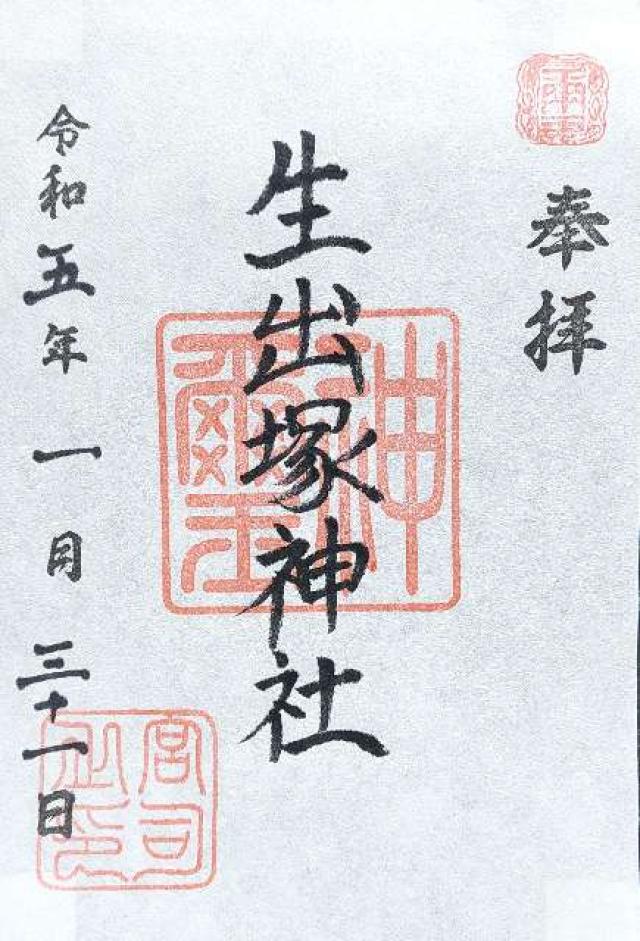 奉拝
生出塚神社
令和五年一月三十一日
神璽
宮司之印